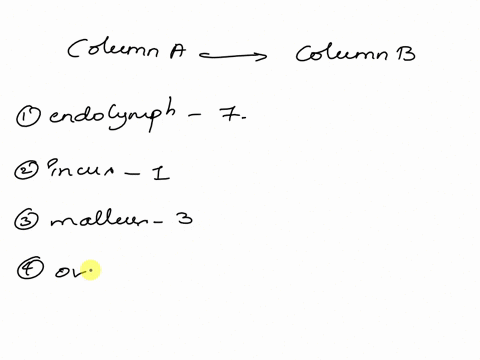 Column A ⟷ Column B
① endolymph - 7.
② incus - 1
③ malleus - 3
④ ov